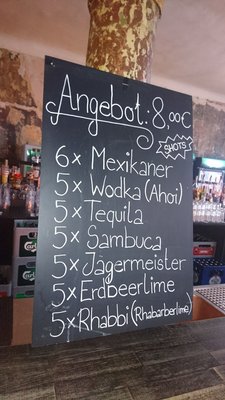 Angebot: 8,00€
SHOTS
6x Mexikaner
5x Wodka (Ahoi)
5x Tequila
5x Sambuca
5x Jägermeister
5x Erdbeerlime
5x Rhabbi (Rhabarberlime)